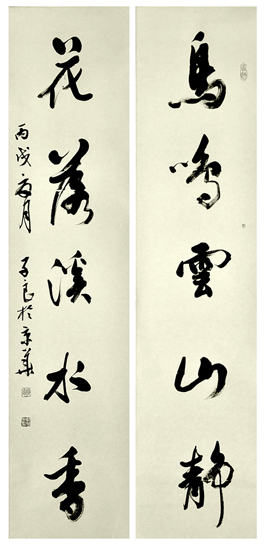 鳥鳴雲山静
花落溪水香
丙戌夏月
子良於京華